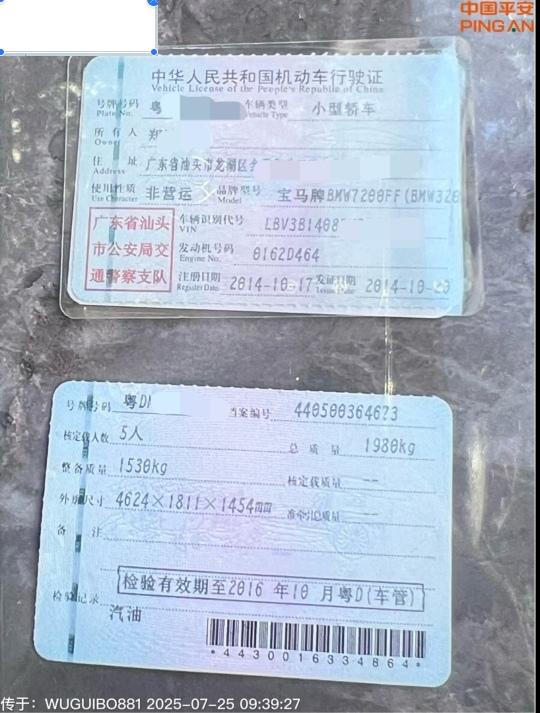 中国平安
PING AN
中华人民共和国机动车行驶证
Vehicle License of the People's Republic of China
号牌号码 粤 车辆类型 小型轿车
Plate No. Vehicle Type
所有人 郑
Owner
住址 广东省汕头市龙湖区
Address
使用性质 非营运 品牌型号 宝马牌BMW7200FF(BMW320
Use Character Model
广东省汕头
市公安局交
通警察支队
车辆识别代号 LBV3B1408
VIN
发动机号码 0162D464
Engine No.
注册日期 2014-10-17 发证日期 2014-10-
Register Date Issue Date
号牌号码 粤D 档案编号 440500364673
核定载人数 5人 总质量 1980kg
整备质量 1530kg 核定载质量 --
外廓尺寸 4624×1811×1454mm 准牵引总质量 --
备注
检验有效期至2016 年10 月粤D(车管)
检验记录
汽油
*4430016334864*
传于：WUGUIBO881 2025-07-25 09:39:27